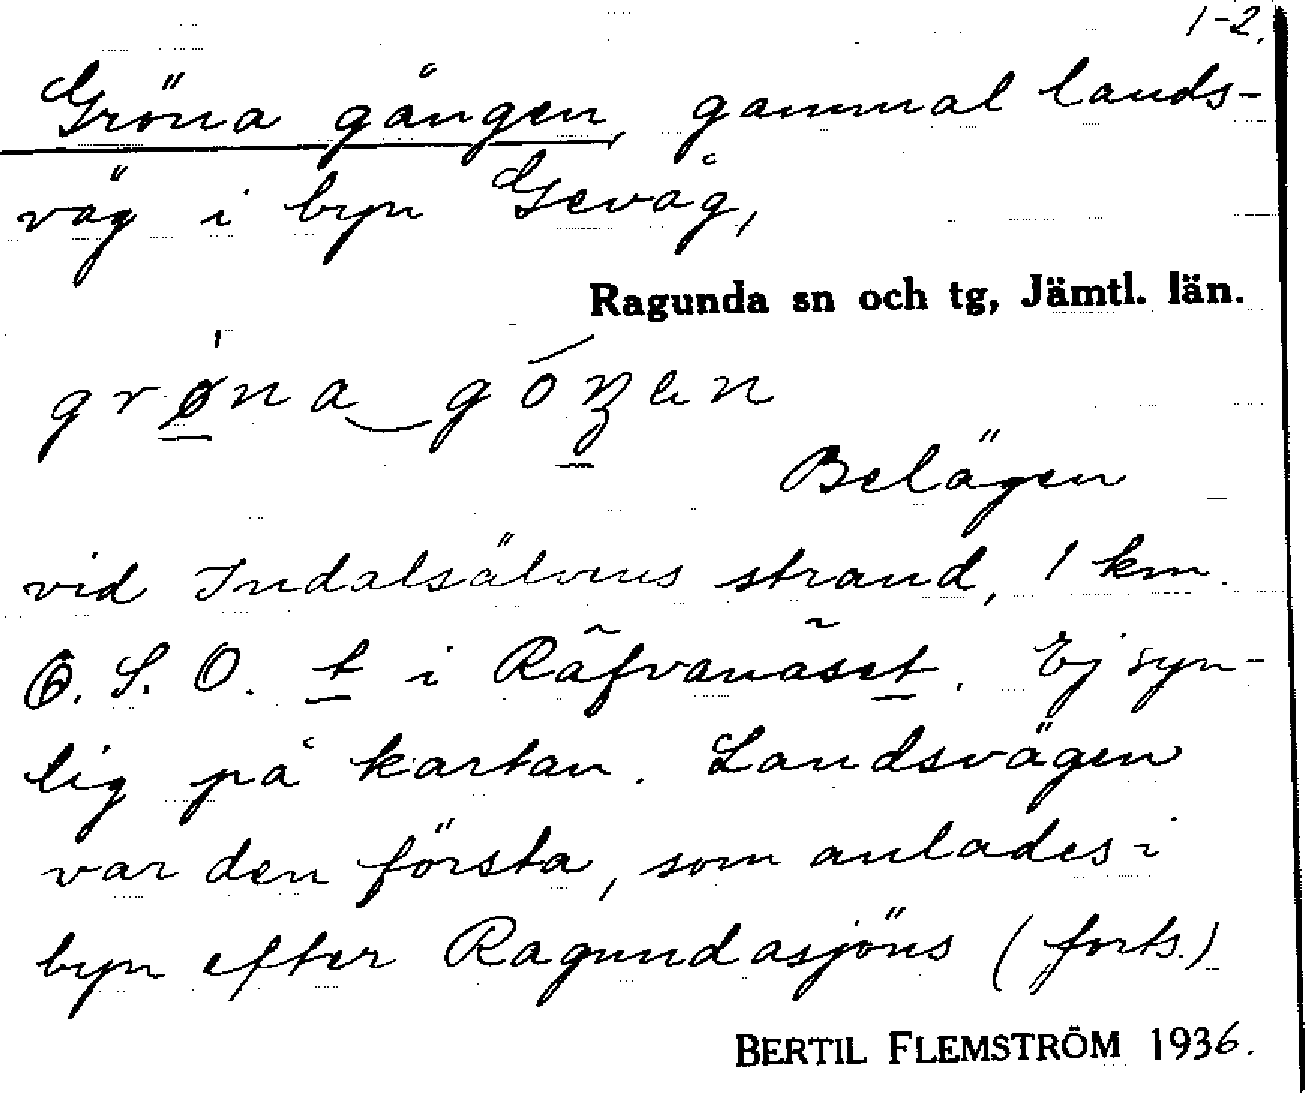 1-2.
Gröna gången, gammal lands-
väg i byn Gevåg,
Ragunda sn och tg, Jämtl. län.
grø̱na‿góŋ̱en
Belägen
vid Indalsälvens strand, 1 km.
O. S. O. t i Räfvanäset. Ej syn-
lig på kartan. Landsvägen
var den första, som anlades i
byn efter Ragundasjöns (forts.)
BERTIL FLEMSTRÖM 1936.